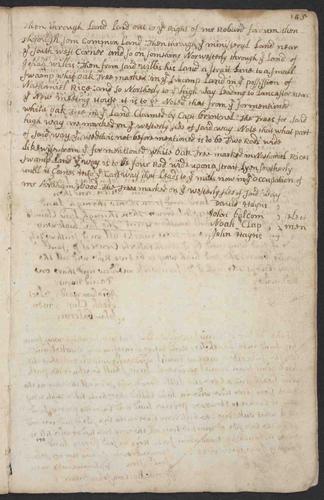 185
then through Land Laid out to ye Right of
then through Common Land Then through ye ministeryal Land near
ye South west Corner and so on Northwesterly through ye Land of
Josiah Willis Then from said Willis his Land a strait line to a small
Swamp white Oak Tree marked in ye Swamp Land in ye possession of
Nathaniel Rice and so Northerly to ye high way Leading to Lancaster near
ye New Meeting House it is to be Noted that from ye forementioned
white Oak tree in ye Land Claimed by Capt The Trees for said
high way are marked on ye westerly side of said way Note that what part
of said way is not before mentioned is to be Two Rods wide
Likewise from ye forementioned White Oak Tree marked in Nathaniel Rices
Swamp Land ye way is to be four Rod wide upon a strait Lyne Southerly
until it Comes into ye Cartway that Leads to ye mills now in ye occupation of
me Abraham Wood The Trees marked on ye westerly side of said way
David Hayns
John Balcom
Noah Clap
John Haynes
Select
men